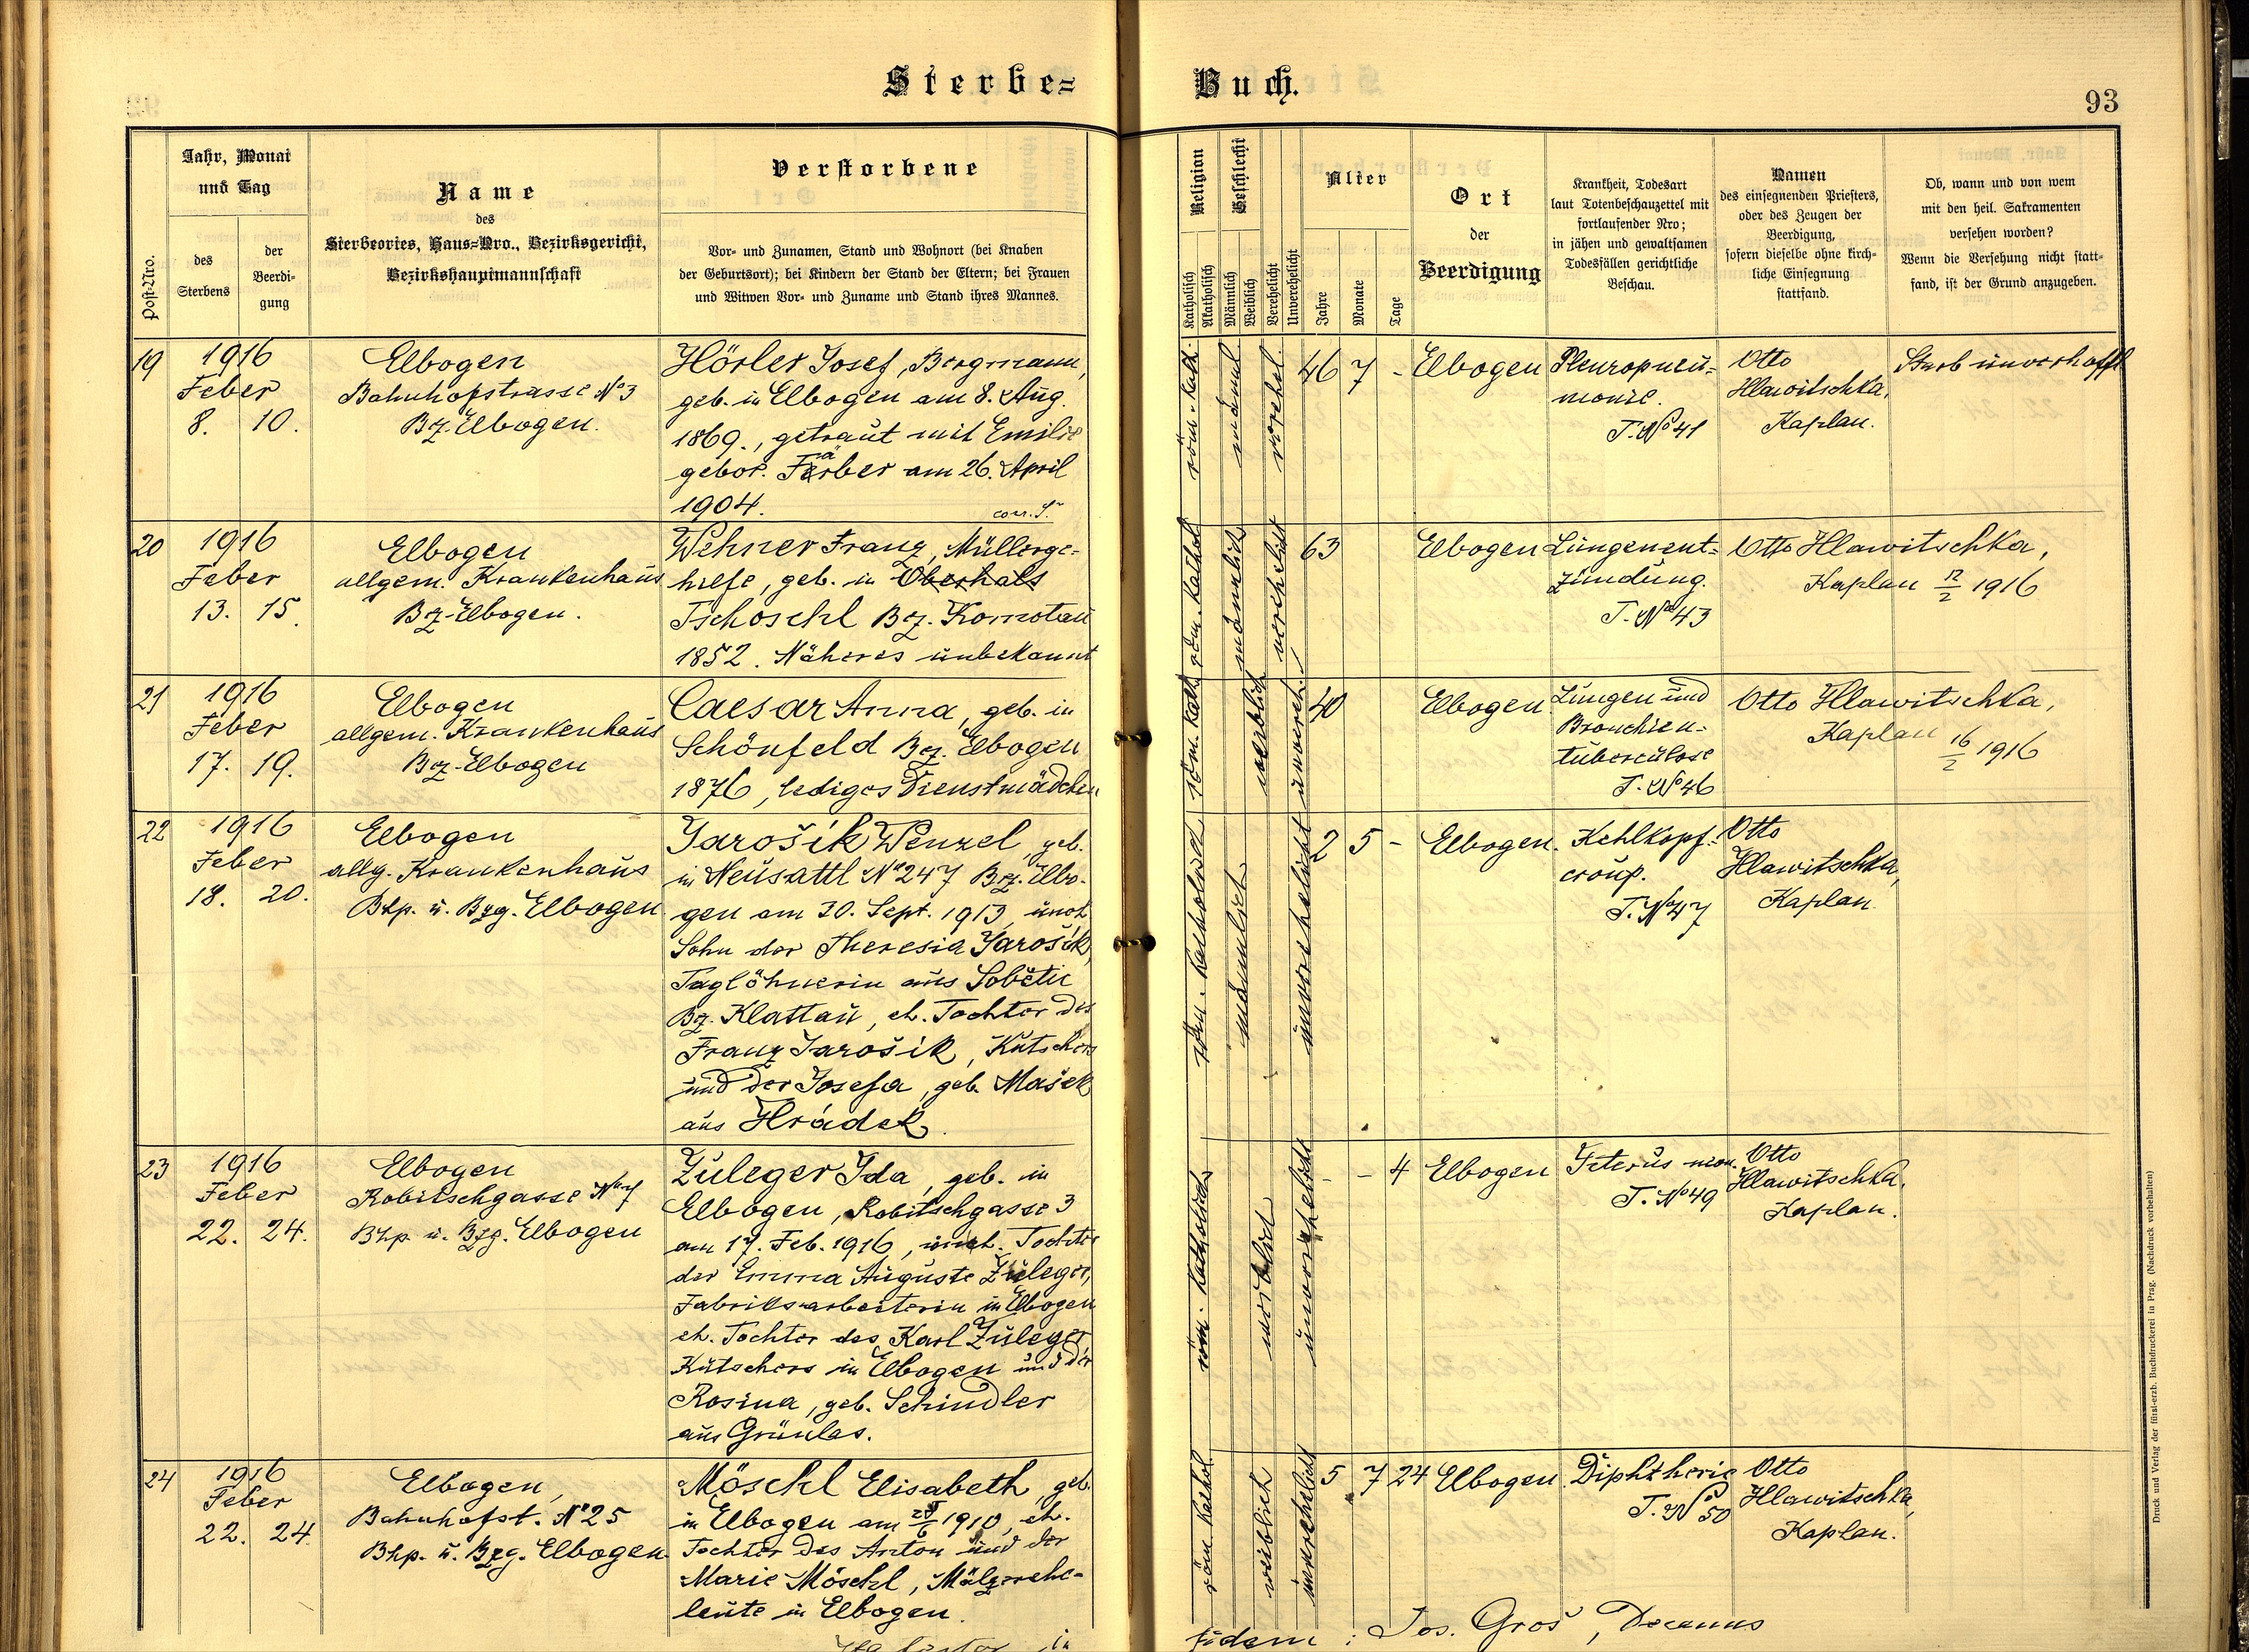 Sterbe= Buch.
93
Post-Nro.
Jahr, Monat
und Tag
des
Sterbens
der
Beerdi-
gung
Name
des
Sterbeortes, Haus-Nro., Bezirksgericht,
Bezirkshauptmannschaft
Verstorbene
Vor- und Zunamen, Stand und Wohnort (bei Knaben
der Geburtsort); bei Kindern der Stand der Eltern; bei Frauen
und Witwen Vor- und Zuname und Stand ihres Mannes.
Religion
Katholisch
Akatholisch
Geschlecht
Männlich
Weiblich
Verehelicht
Unverehelicht
Alter
Jahre
Monate
Tage
Ort
der
Beerdigung
Krankheit, Todesart
laut Totenbeschauzettel mit
fortlaufender Nro;
in jähen und gewaltsamen
Todesfällen gerichtliche
Beschau.
Namen
des einsegnenden Priesters,
oder des Zeugen der
Beerdigung,
sofern dieselbe ohne kirch-
liche Einsegnung
stattfand.
Ob, wann und von wem
mit den heil. Sakramenten
versehen worden?
Wenn die Versehung nicht statt-
fand, ist der Grund anzugeben.
19
1916
Feber
8. 10.
Elbogen
Bahnhofstrasse No 3
Bz. Elbogen.
Hörler Josef, Bergmann,
geb. in Elbogen am 8. Aug.
1869., getraut mit Emilie
gebor. Färber am 26. April
1904.
corr.
röm. kath.
männl
verehel.
46 7 -
Elbogen
Pleuropneu=
monie.
T. No 41
Otto
Hlawitschka,
Kaplan.
Starb unverhofft
20
1916
Feber
13. 15.
Elbogen
allgem. Krankenhaus
Bz-Elbogen.
Wehner Franz, Müllerge-
hilfe, geb. in Oberhals
Tschoschl Bez. Komotau
1852. Näheres unbekannt
röm. kathol
männlich
verehelicht
63
Elbogen
Lungenent=
zündung.
T. No 43
Otto Hlawitschka,
Kaplan 12/2 1916
21
1916
Feber
17. 19.
Elbogen
allgem. Krankenhaus
Bez-Elbogen
Caesar Anna, geb. in
Schönfeld Bez. Elbogen
1876, lediges Dienstmädchen
röm. kath
weiblich
unvereh.
40
Elbogen
Lungen und
Bronchien-
tuberculose
T. No 46
Otto Hlawitschka,
Kaplan 16/2 1916
22
1916
Feber
18. 20.
Elbogen
allg. Krankenhaus
Bhp. u. Bzg. Elbogen
Jarošik Wenzel, geb.
in Neusattl No 247 Bez. Elbo-
gen am 30. Sept. 1913, uneh
Sohn der Theresia Jarošik,
Taglöhnerin aus Sobětic
Bz. Klattau, eh. Tochter des
Franz Jarošik, Kutschers
und der Josefa, geb. Mašek
aus Hrádek.
röm. katholisch
männlich
unverehelicht
2 5 -
Elbogen.
Kehlkopf-
croup.
T. No 47
Otto
Hlawitschka,
Kaplan.
23
1916
Feber
22. 24.
Elbogen
Robitschgasse No 7
Bhp u. Bzg. Elbogen
Zuleger Ida, geb. in
Elbogen, Robitschgasse 3
am 17. Feb. 1916, uneh. Tochter
der Emma Auguste Zuleger,
Fabriksarbeiterin in Elbogen
eh. Tochter des Karl Zuleger
Kutschers in Elbogen und der
Rosina, geb. Schindler
aus Grünlas.
röm. katholisch
weiblich
unverehelicht
- - 4
Elbogen
T. No 49
Otto
Hlawitschka,
Kaplan.
24
1916
Feber
22. 24.
Elbogen,
Bahnhofst. No 25
Bhp. u. Bzg. Elbogen
Möschl Elisabeth, geb.
in Elbogen am 6 1910, eh.
Tochter des Anton und der
Marie Möschl, Mälzersehe-
leute in Elbogen.
röm kathol
weiblich
unverehelicht
5 7 24
Elbogen.
Diphtherie
T. No 50
Otto
Hlawitschka,
Kaplan.
fidem: Jos. Groš, Decanus
Druck und Verlag der fürst-erzb. Buchdruckerei in Prag. (Nachdruck vorbehalten)